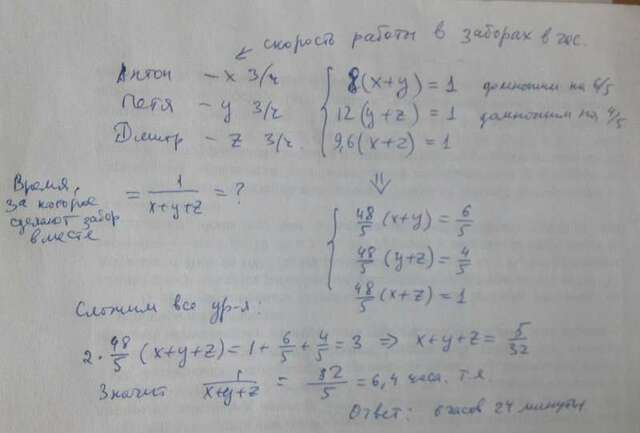 скорость работы в заборах в час.
Антон – x З/ч
Петя – y З/ч
Дмитр – z З/ч.
8(x+y) = 1 домножим на 6/5
12(y+z) = 1 домножим на 4/5
9,6(x+z) = 1
⇓
Время,
за которое
сделают забор
вместе
= 1/(x+y+z) = ?
48/5 (x+y) = 6/5
48/5 (y+z) = 4/5
48/5 (x+z) = 1
Сложим все ур-я:
2 · 48/5 (x+y+z) = 1 + 6/5 + 4/5 = 3 ⇒ x+y+z = 5/32
Значит 1/(x+y+z) = 32/5 = 6,4 часа. т.я.
Ответ: 6 часов 24 минуты